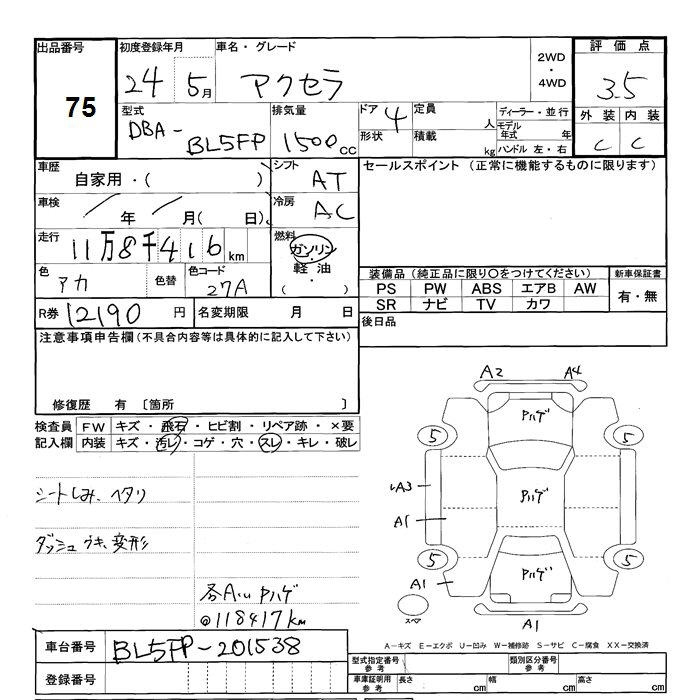 出品番号
75
初度登録年月
24 5月
車名・グレード
アクセラ
2WD
・
4WD
評価点
3.5
外装 内装
C C
型式
DBA-
BL5FP
排気量
1500cc
ドア 4
形状
定員 人
積載 kg
ディーラー・並行
モデル
年式 年
ハンドル 左・右
車歴
自家用・( )
シフト
AT
セールスポイント (正常に機能するものに限ります)
車検
年 月( 日)
冷房
AC
走行
11万8千416km
燃料
ガソリン
・
軽油
( )
色
アカ
色替
色コード
27A
装備品 (純正品に限り〇をつけてください)
PS PW ABS エアB AW
SR ナビ TV カワ
新車保証書
有・無
R券 12190円
名変期限 月 日
後日品
注意事項申告欄(不具合内容等は具体的に記入して下さい)
修復歴 有 〔箇所 〕
検査員
記入欄
FW キズ・飛石・ヒビ割・リペア跡・×要
内装 キズ・汚レ・コゲ・穴・スレ・キレ・破レ
シートしみ、ヘタリ
ダッシュウキ、変形
@118417km
A2 A4
ハゲ
5 5
A3
ハゲ
A1
5 5
ハゲ
A1
スペア
A1
A-キズ E-エクボ U-凹み W-補修跡 S-サビ C-腐食 XX-交換済
車台番号 BL5FP-201538
登録番号
型式指定番号
参考
類別区分番号
参考
車庫証明用
参考
長さ cm 幅 cm 高さ cm